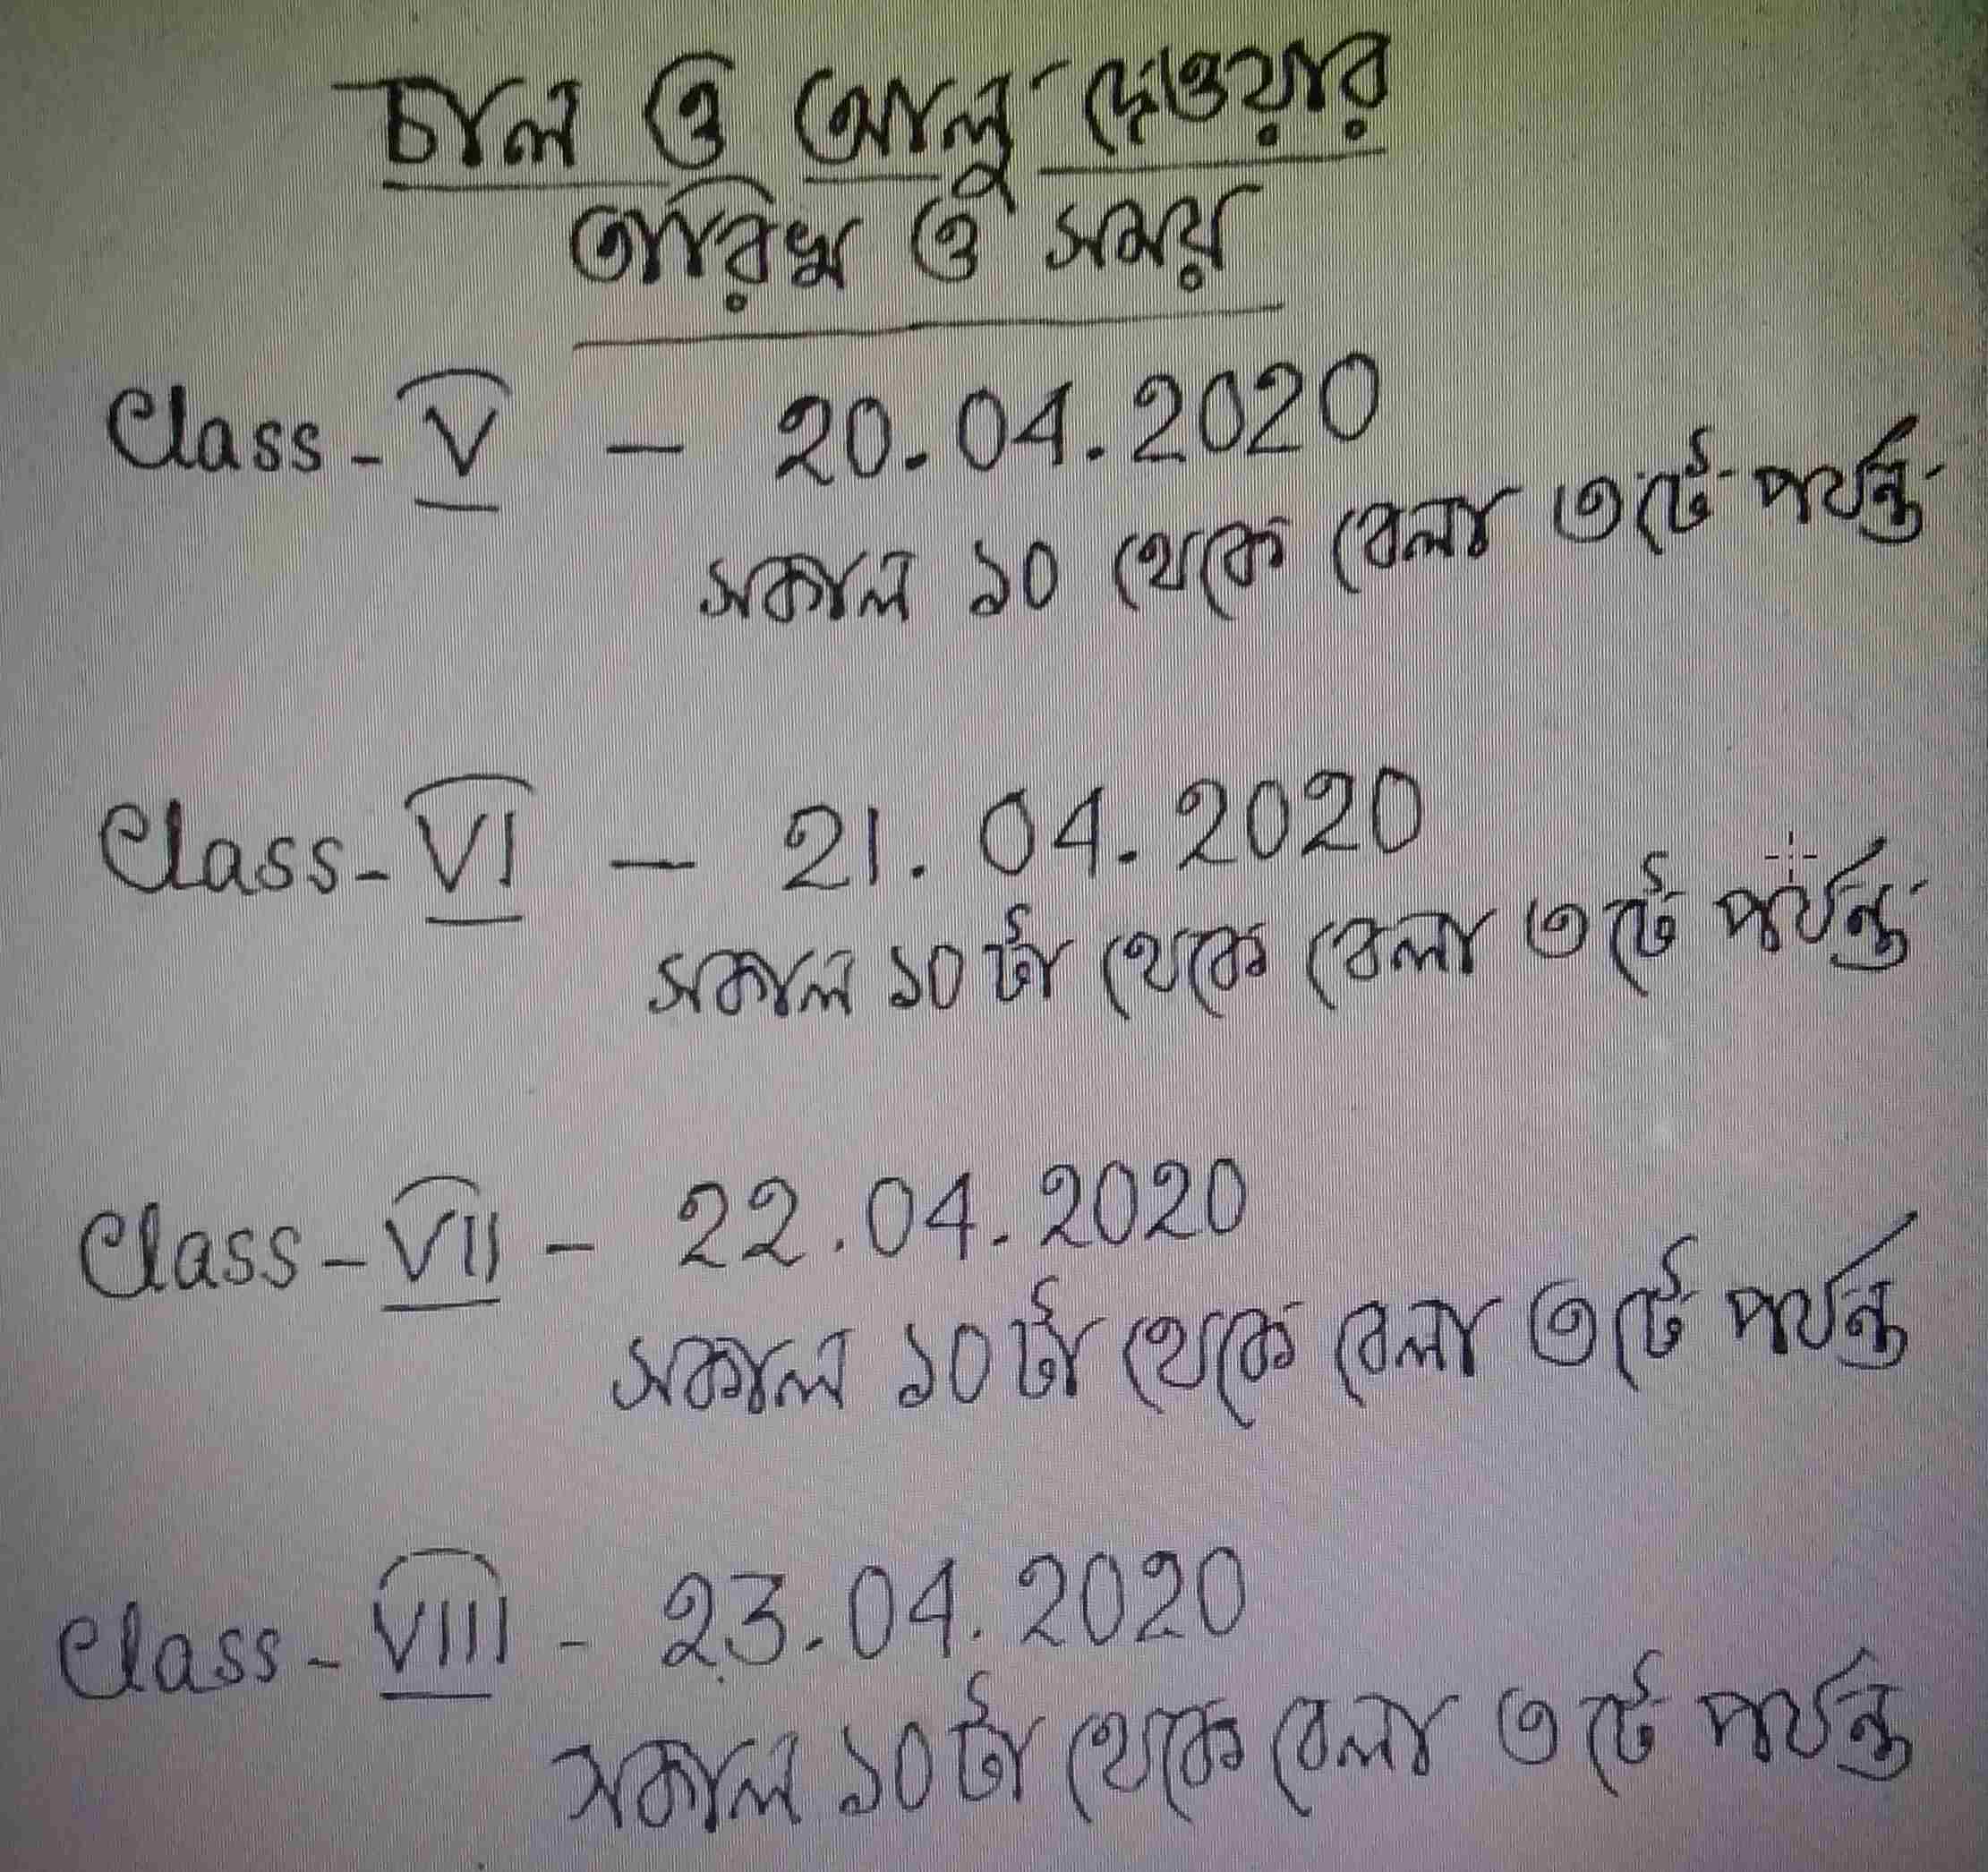 চাল ও আলু দেওয়ার
তারিখ ও সময়
Class - V - 20.04.2020
সকাল ১০ থেকে বেলা ৩টে পর্যন্ত
Class - VI - 21.04.2020
সকাল ১০টা থেকে বেলা ৩টে পর্যন্ত
Class - VII - 22.04.2020
সকাল ১০টা থেকে বেলা ৩টে পর্যন্ত
Class - VIII - 23.04.2020
সকাল ১০টা থেকে বেলা ৩টে পর্যন্ত